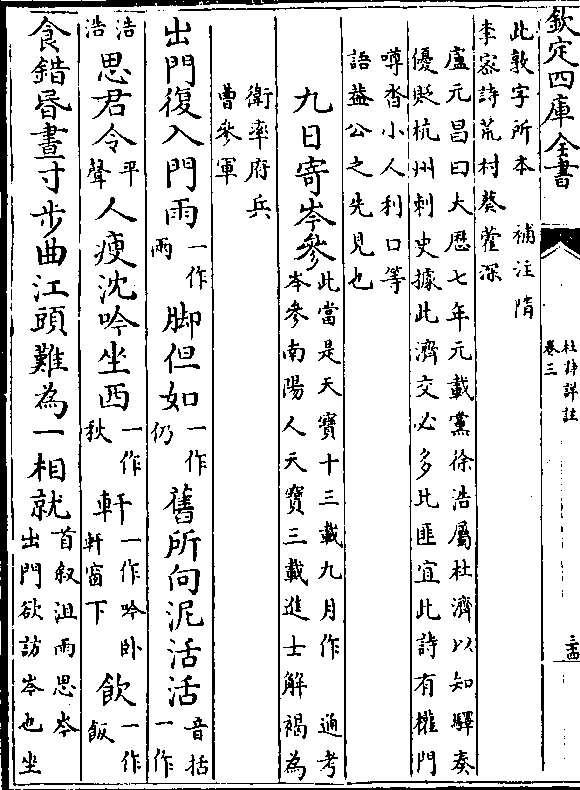 欽定四庫全書
杜詩詳註
卷三
三四
此敦字所本　補注隋
李密詩荒村葵藿深
盧元昌曰大歴七年元載黨徐浩屬杜濟以知驛奏
優貶杭州刺史據此濟交必多比匪宜此詩有權門
噂沓小人利口等
語益公之先見也
九日寄岑參此當是天寶十三載九月作　通考
岑參南陽人天寶三載進士解褐為
衛率府兵
曹參軍
出門復入門雨一作雨脚但如一作仍舊所向泥活活音括一作
浩浩思君令平聲人瘦沈吟坐西一作秋軒一作吟卧軒窗下飲一作飯
食錯昏晝寸步曲江頭難為一相就首叙沮雨思岑
出門欲訪岑也坐